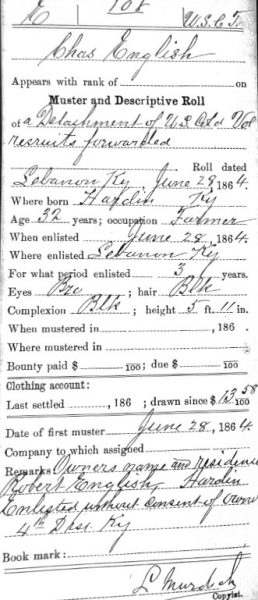 E 108 U.S.C.T.
Chas English
Appears with rank of on
Muster and Descriptive Roll
of a Detachment of U.S. Cold Vol
recruits forwarded
Roll dated
Lebanon Ky June 29, 1864.
Where born Hardin Ky
Age 32 years; occupation Farmer
When enlisted June 28, 1864.
Where enlisted Lebanon Ky
For what period enlisted 3 years.
Eyes Bro ; hair Blk
Complexion Blk ; height 5 ft. 11 in.
When mustered in , 186 .
Where mustered in
Bounty paid $ 100; due $ 100
Clothing account:
Last settled , 186 ; drawn since $ 13 58/100
Date of first muster June 28, 1864
Company to which assigned
Remarks: Owners name and residence
Robert English, Hardin
Enlisted without consent of owner
4th Dist. Ky
Book mark:
L Murdoch
Copyist.